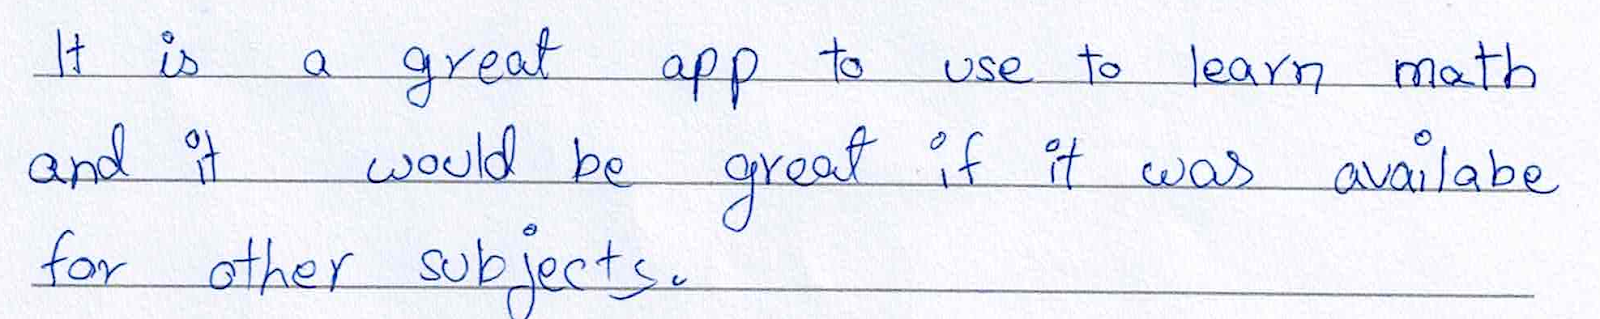 It is a great app to use to learn math
and it would be great if it was availabe
for other subjects.